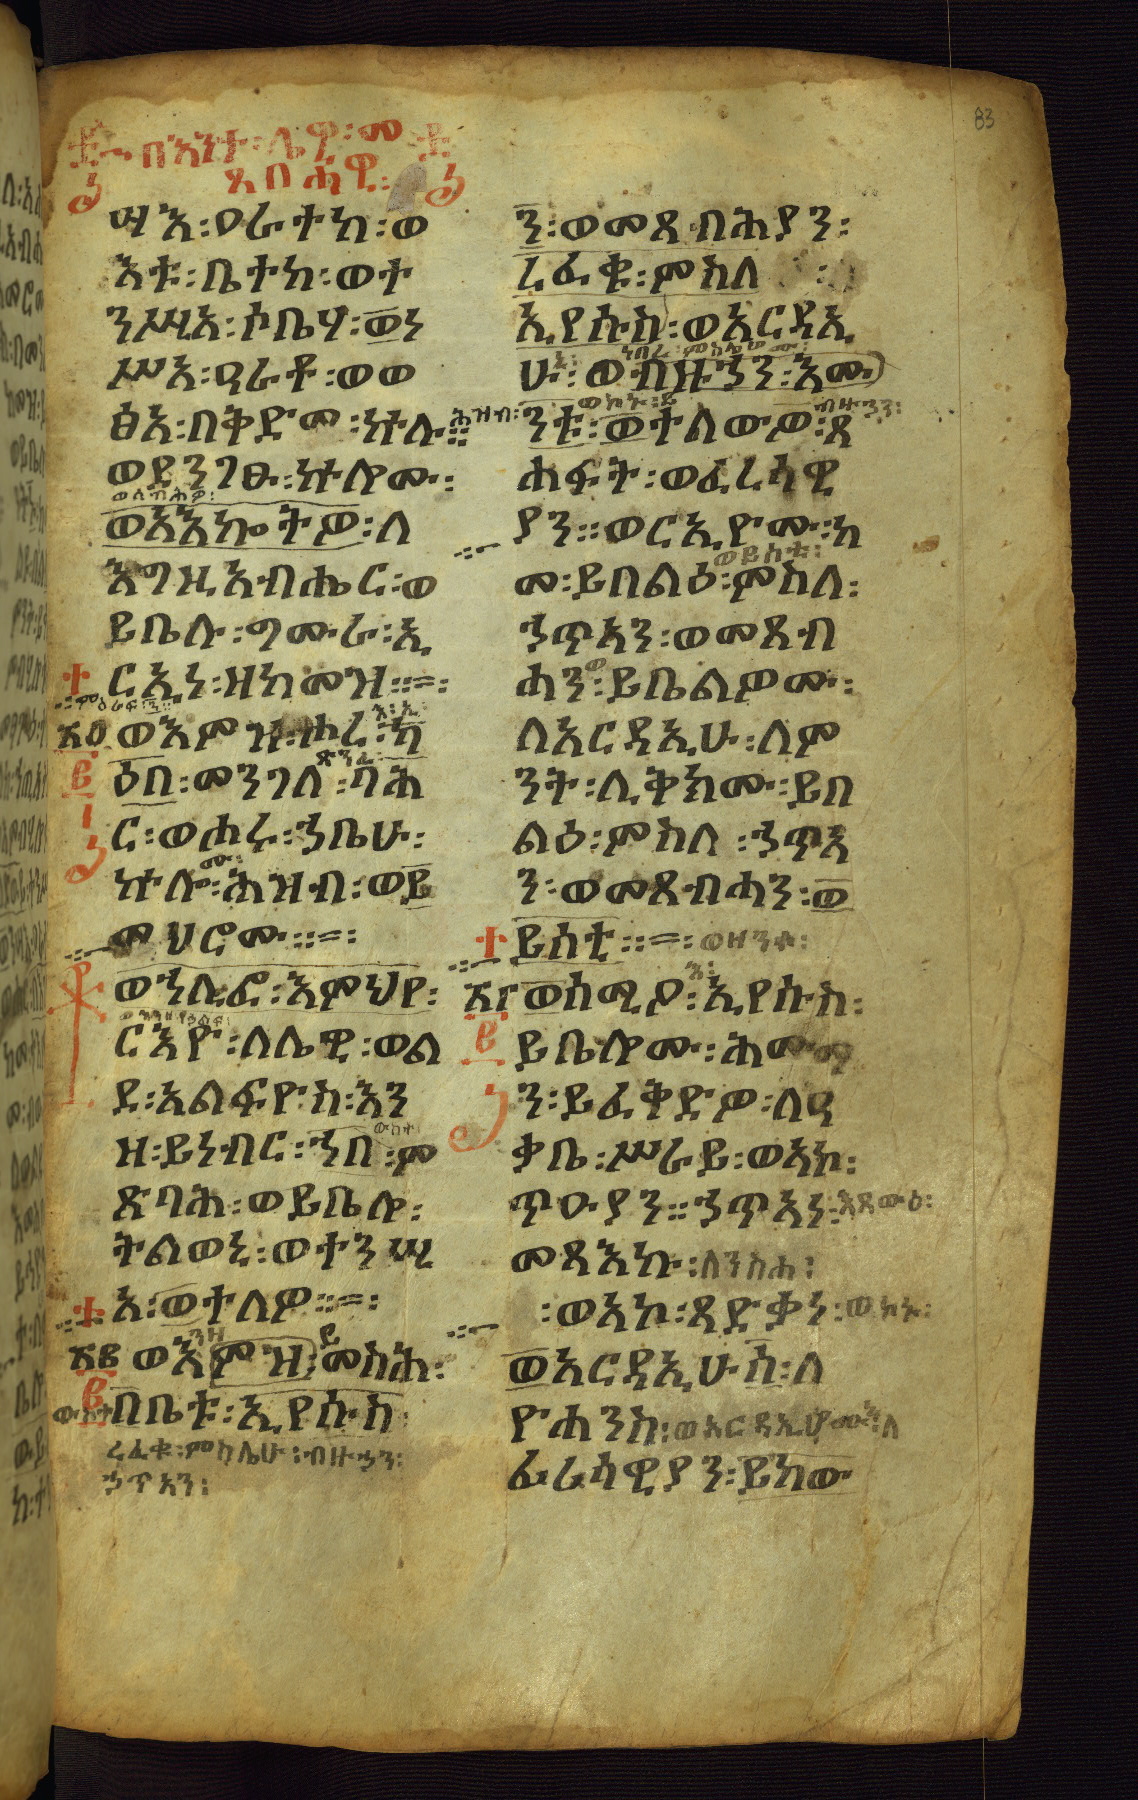 በእንተ፡ሌዊ፡መ
ጸብሓዊ፡
ሣእ፡ዐራተከ፡ወ
እቱ፡ቤተከ፡ወተ
ንሥአ፡ሶቤሃ፡ወነ
ሥአ፡ዓራቶ፡ወወ
ፅአ፡በቅድመ፡ኵሉ፡ሕዝብ፡
ወደንገፁ፡ኵሎሙ፡
ወሰብሕዎ፡
ወአእኰትዎ፡ለ
እግዚአብሔር፡ወ
ይቤሉ፡ግሙራ፡ኢ
ርኢነ፡ዘከመዝ፡፡=፡
ወእምዝ፡ሐረ፡ካ
ዕበ፡መንገለ፡ባሕ
ር፡ወሐሩ፡ኀቤሁ፡
ኵሎሙ፡ሕዝብ፡ወይ
መህሮሙ፡፡=፡
ወኀሊፎ፡እምህየ፡
ርእዮ፡ለሌዊ፡ወል
ደ፡እልፍዮስ፡እን
ዘ፡ይነብር፡ኀበ፡ም
ጽባሕ፡ወይቤሎ፡
ትልወኒ፡ወተንሢ
አ፡ወተለዎ፡፡=፡
ወእምዝ፡መስሕ፡
በቤቱ፡ኢየሱስ
ረፈቁ፡ምስሌሁ፡ብዙኃን፡
ኃጥአን፡
83
ን፡ወመጸብሕያን፡
ረፈቁ፡ምስለ
ኢየሱስ፡ወአርዳኢ
ሁ፡ወብዙኃን፡እሙ
ንቱ፡ወተለውዎ፡ጸ
ሐፍት፡ወፈሪሳዊ
ያን፡፡ወርኢዮሙ፡ከ
መ፡ይበልዕ፡ምስለ፡
ኃጥአን፡ወመጸብ
ሓን፡ይቤልዎሙ፡
ለአርዳኢሁ፡ለም
ንት፡ሊቅክሙ፡ይበ
ልዕ፡ምስለ፡ኃጥአ
ን፡ወመጸብሓን፡ወ
ይሰቲ፡፡=፡ወዘንተ፡
ወሰሚዖ፡ኢየሱስ፡
ይቤሎሙ፡ሕሙማ
ን፡ይፈቅድዎ፡ለዓ
ቃቤ፡ሥራይ፡ወአኮ፡
ጥዑያን፡፡ኃጥአነ፡እጸውዕ፡
መጻእኩ፡ለንስሐ፡
፡ወአኮ፡ጻድቃነ፡ወኮኑ፡
ወአርዳኢሁሰ፡ለ
ዮሐንስ፡ወአርዳኢሆሙ፡ለ
ፈሪሳዊያን፡ይከው